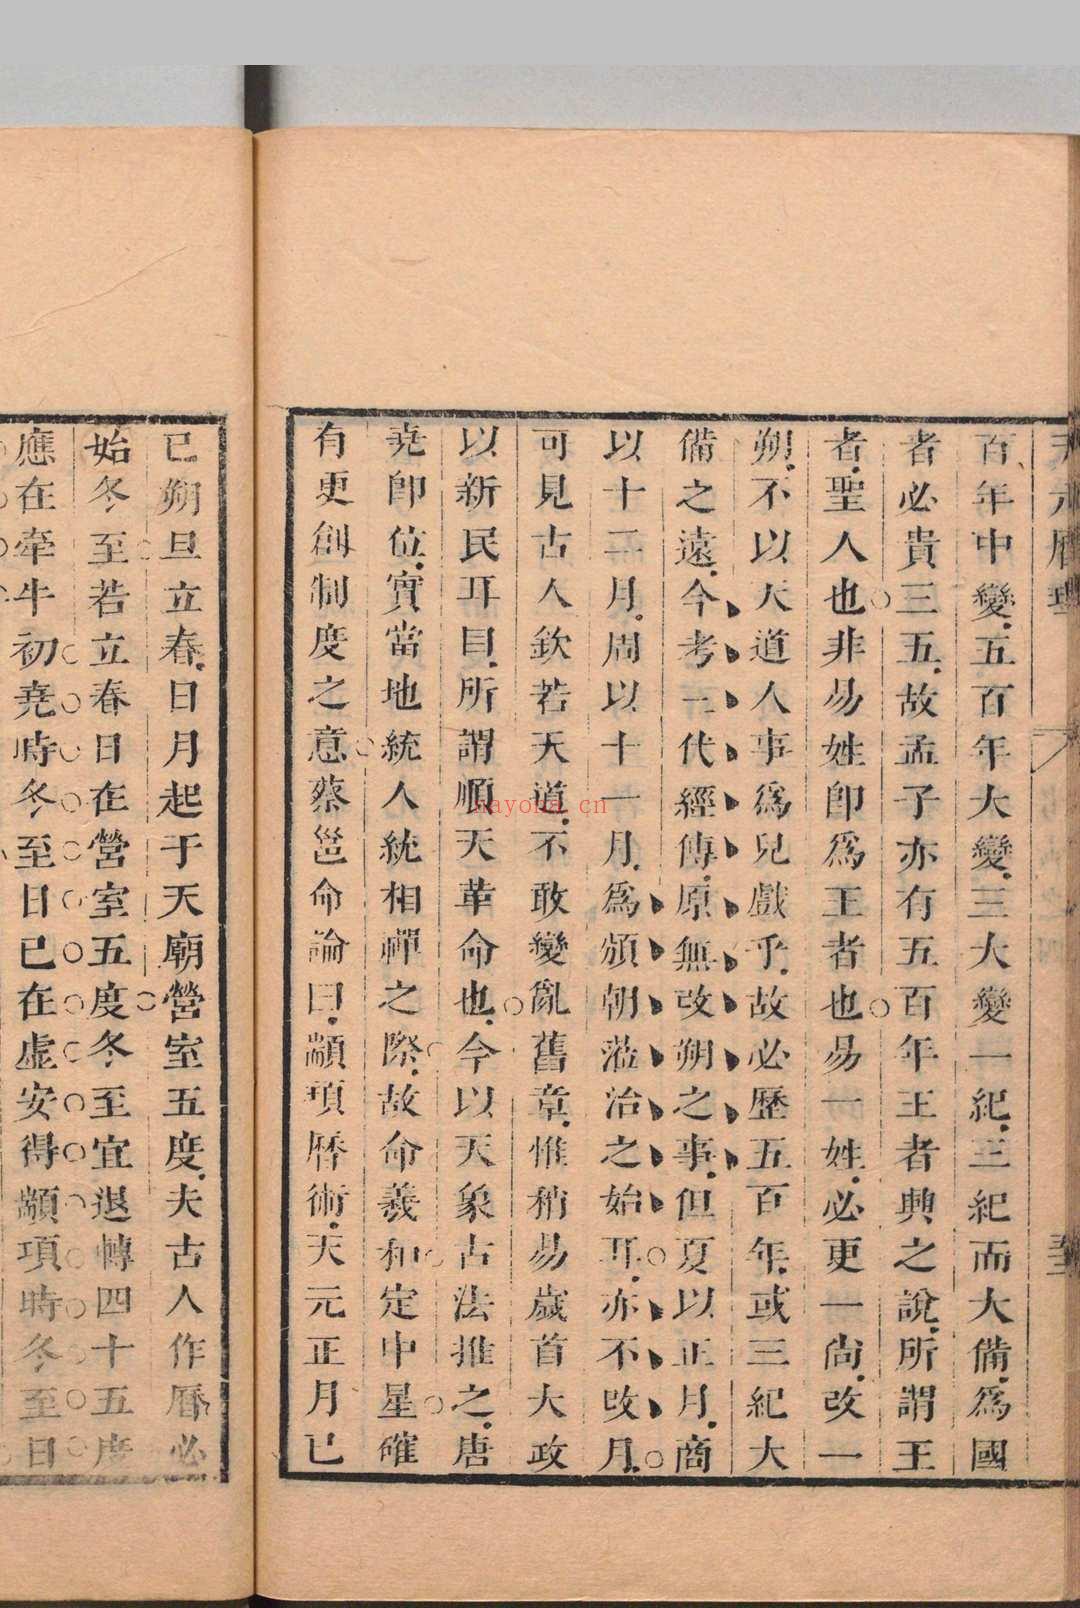 天元曆理
百年中變五百年大變三大變一紀三紀而大備爲國
者必貴三五故孟子亦有五百年王者興之說所謂王
者聖人也非易姓卽爲王者也易一姓必更一尚改一
朔不以天道人事爲兒戲乎故必歷五百年或三紀大
備之遠今考三代經傳原無改朔之事但夏以正月商
以十二月周以十一月爲頒朝蒞治之始耳亦不改月
可見古人欽若天道不敢變亂舊章惟稍易歲首大政
以新民耳目所謂順天革命也今以天象古法推之唐
堯卽位實當地統人統相禪之際故命羲和定中星確
有更創制度之意蔡邕命論曰顓頊曆術天元正月已
已朔旦立春日月起于天廟營室五度夫古人作曆必
始冬至若立春日在營室五度冬至宜退轉四十五度
應在牽牛初堯時冬至日已在虛安得顓頊時冬至日
nayona.cn